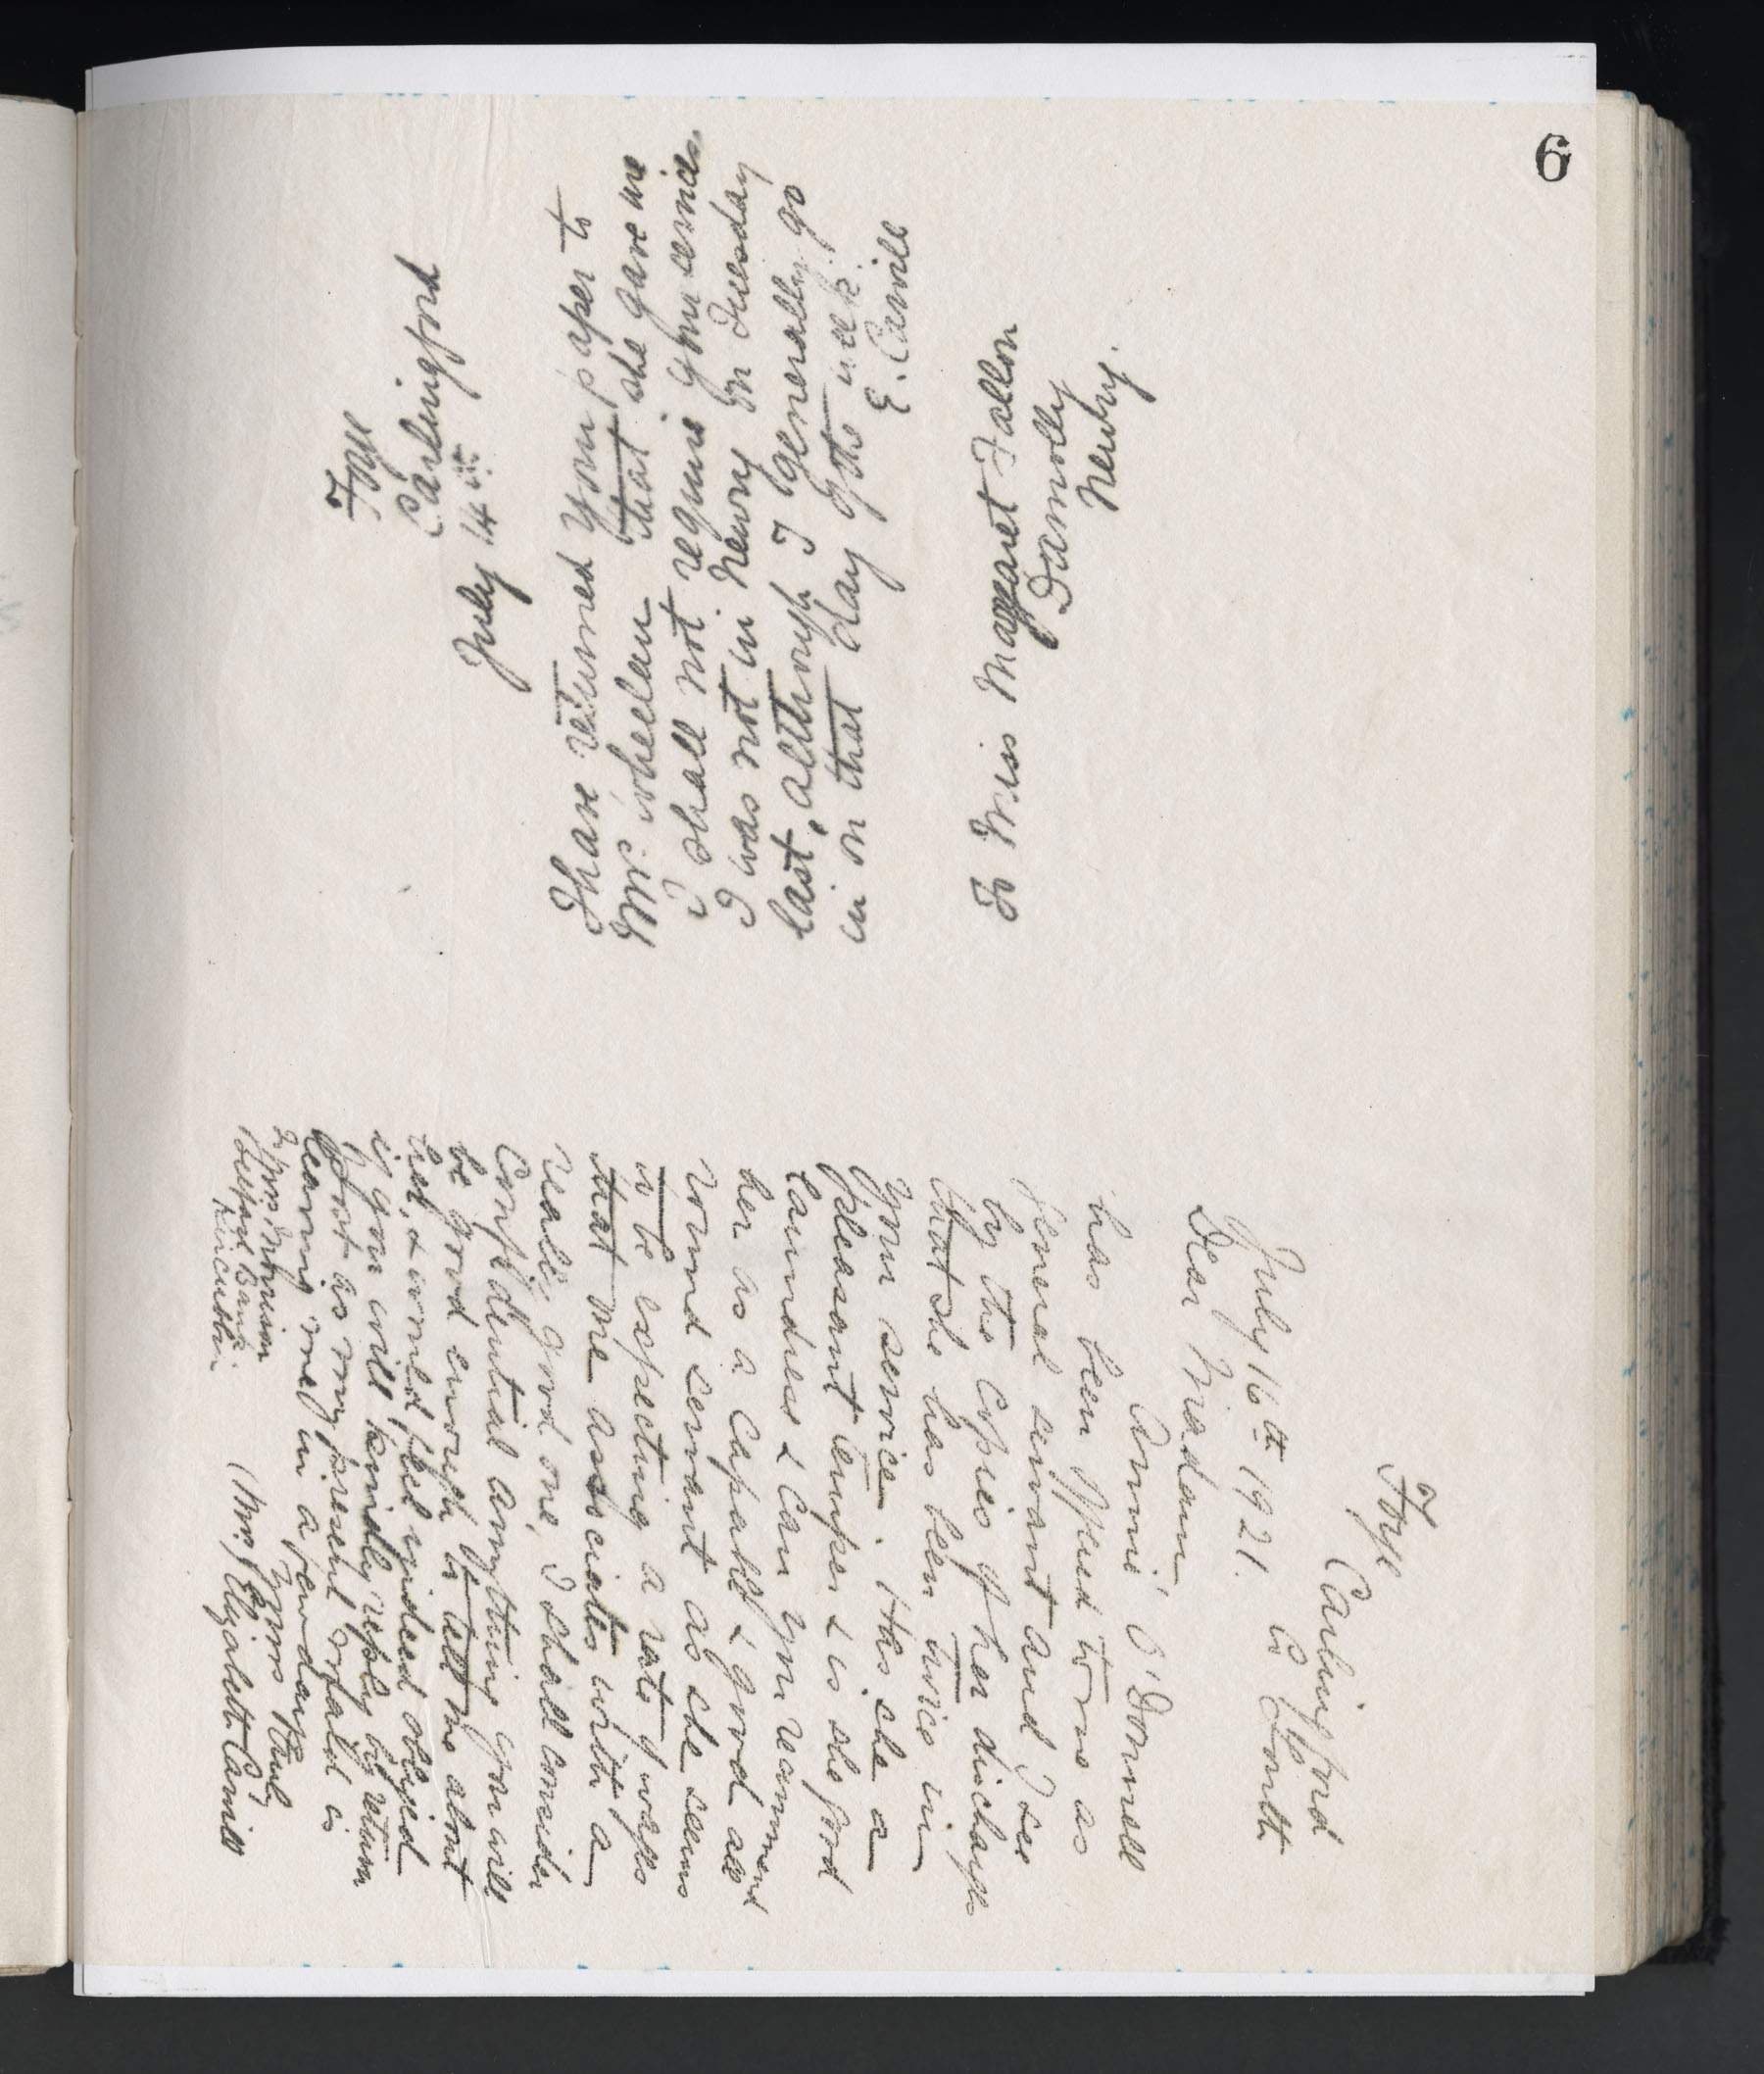 6
Foyl
Carlingford
July 14th
I have returned your paper to
Mrs Wheelan that she gave me
I shall not require your services.
I was not in Newry on Tuesday
last, although I generally go
in on that day of the week.
E. Carvill
To Miss Margaret Fallon
Damolly
Newry.
Foyl
Carlingford
Co Louth
July 16th 1921.
Dear Madam,
Annie O'Donnell
has been offered to me as
general servant and I see
by the copies of her discharges
that she has been twice in
your service. Has she a
pleasant temper & is she good
laundress & can you recommend
her as a capable & good all
round servant as she seems
to be expecting a rate of wages
that one associates with a
really good one, I shall consider
confidential anything you will
be good enough to tell me about
her, & would feel indeed obliged
if you will kindly reply by return
of post as my present maid is
leaving me in a few days.
Yours truly
(Mrs) Elizabeth Carvill
Ulster Bank